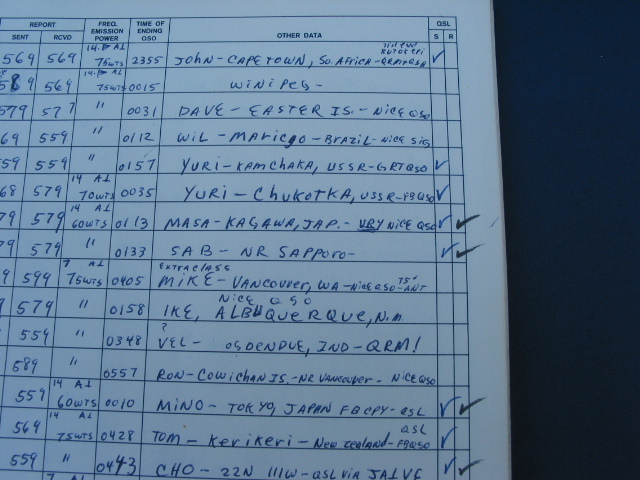 REPORT FREQ. EMISSION POWER TIME OF ENDING QSO OTHER DATA QSL
SENT RCVD S R
569 569 14. A1 75WTS 2355 JOHN - CAPETOWN, So. AFRICA - ✓
589 569 14. A1 75WTS 0015 WINIPEG -
579 577 " 0031 DAVE - EASTER IS. - NICE QSO
69 559 " 0112 WIL - - BRAZIL - NICE SIG
59 559 " 0157 YURI - KAMCHAKA, USSR - GRT QSO ✓
68 579 14 A1 70WTS 0035 YURI - CHUKOTKA, USSR - FB QSO ✓
79 579 14 A1 60WTS 0113 MASA - KAGAWA, JAP. - VRY NICE QSO ✓ ✓
79 579 " 0133 SAB - NR SAPPORO - ✓ ✓
9 599 7 A1 75WTS 0405 EXTRA CLASS MIKE - VANCOUVER, WA - NICE QSO - 75' ANT
9 579 " 0158 IKE, ALBUQUERQUE, N.M. NICE QSO
559 " 0348 VEL - ? OSDENDUE, IND - QRM!
589 " 0557 RON - COWICHAN IS. - NR VANCOUVER - NICE QSO
559 14 A1 60WTS 0010 MINO - TOKYO, JAPAN FB CPY - QSL ✓ ✓
569 14 A1 75WTS 0428 TOM - KERIKERI - NEW ZEALAND - FB QSO QSL ✓
559 " 0443 CHO - 22N 111W - QSL VIA JA1VE ✓ ✓
7 A1